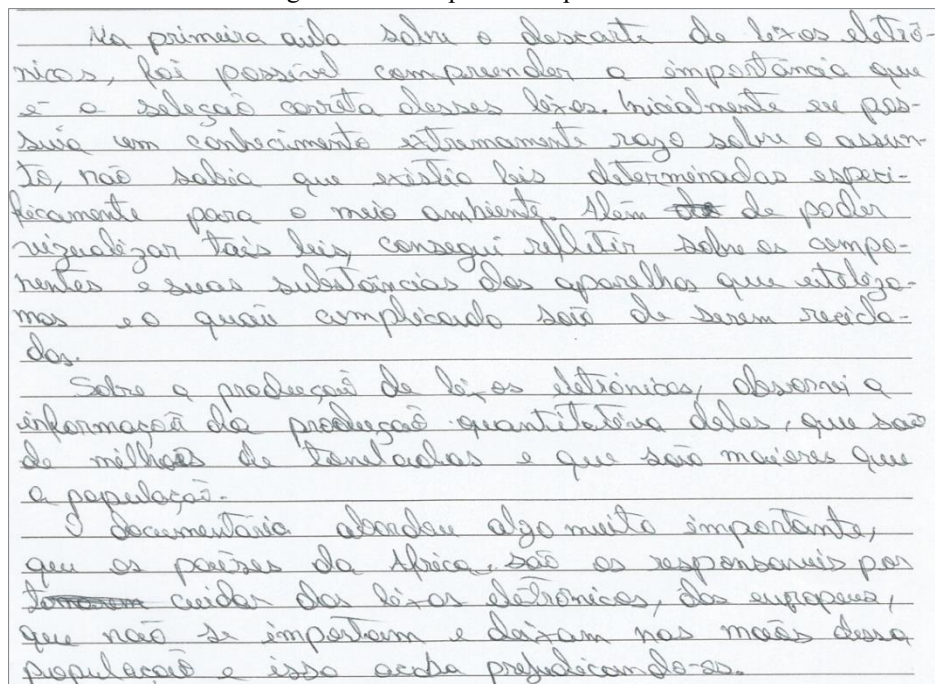 Na primeira aula sobre o descarte de lixos eletrô-
nicos, foi possível compreender a importância que
é a seleção correta desses lixos. Inicialmente eu pos-
suia um conhecimento extremamente razo sobre o assun-
to, não sabia que existia leis determinadas especi-
ficamente para o meio ambiente. Além de poder
vizualizar tais leis, consegui refletir sobre os compo-
nentes e suas substâncias dos aparelhos que utiliza-
mos e o quão complicado são de serem recicla-
dos.
Sobre a produção de lixos eletrônicos, absorvi a
informação da produção quantitativa deles, que são
de milhões de toneladas e que são maiores que
a população.
O documentário abordou algo muito importante,
que os países da África, são os responsáveis por
cuidar dos lixos eletrônicos, dos europeus,
que não se importam e deixam nas mãos dessa
população e isso acaba prejudicando-os.